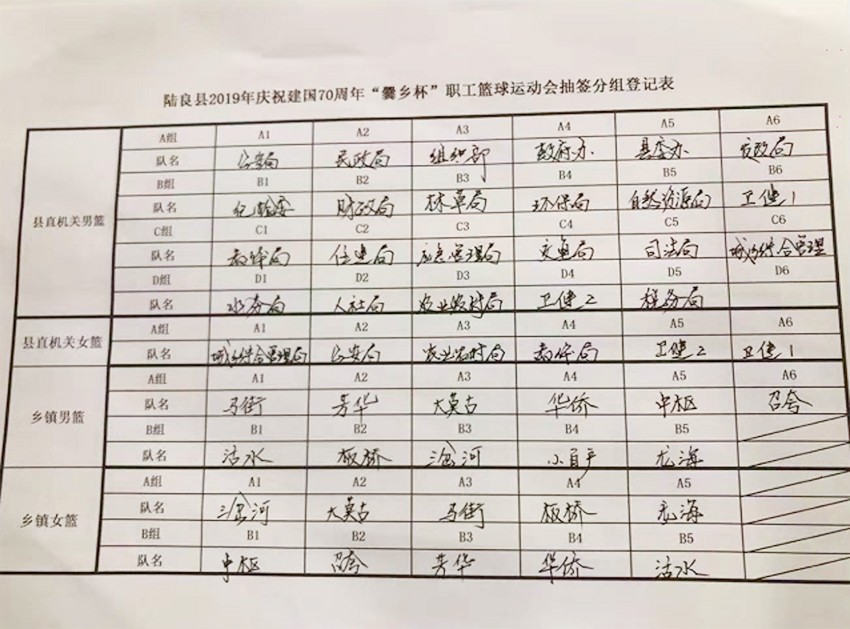 陆良县2019年庆祝建国70周年“爨乡杯”职工篮球运动会抽签分组登记表
县直机关男篮
A组 A1 A2 A3 A4 A5 A6
队名 公安局 民政局 组织部 政府办 县委办 发改局
B组 B1 B2 B3 B4 B5 B6
队名 纪检委 财政局 林草局 环保局 自然资源局 卫健1
C组 C1 C2 C3 C4 C5 C6
队名 教体局 住建局 应急管理局 交通局 司法局 城乡综合管理
D组 D1 D2 D3 D4 D5 D6
队名 水务局 人社局 农业农村局 卫健2 税务局
县直机关女篮
A组 A1 A2 A3 A4 A5 A6
队名 城乡综合管理局 公安局 农业农村局 教体局 卫健2 卫健1
乡镇男篮
A组 A1 A2 A3 A4 A5 A6
队名 马街 芳华 大莫古 华侨 中枢 召夸
B组 B1 B2 B3 B4 B5
队名 活水 板桥 三岔河 小百户 龙海
乡镇女篮
A组 A1 A2 A3 A4 A5
队名 三岔河 大莫古 马街 板桥 龙海
B组 B1 B2 B3 B4 B5
队名 中枢 召夸 芳华 华侨 活水